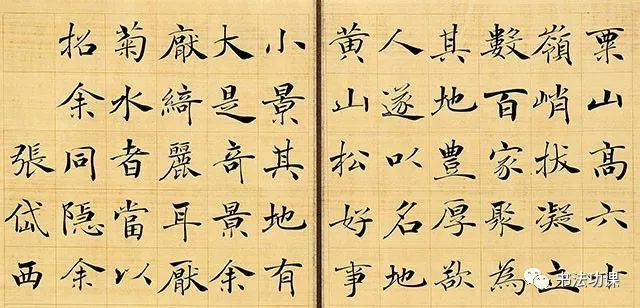 粟山高六
嶺峭拔凝立
數百家聚為
其地豊厚
人遂以名地
黄山松好事
小景其地有
大是奇景余
厭綺麗耳厭
菊水者當以
招余同隱余
張岱西
书法功课